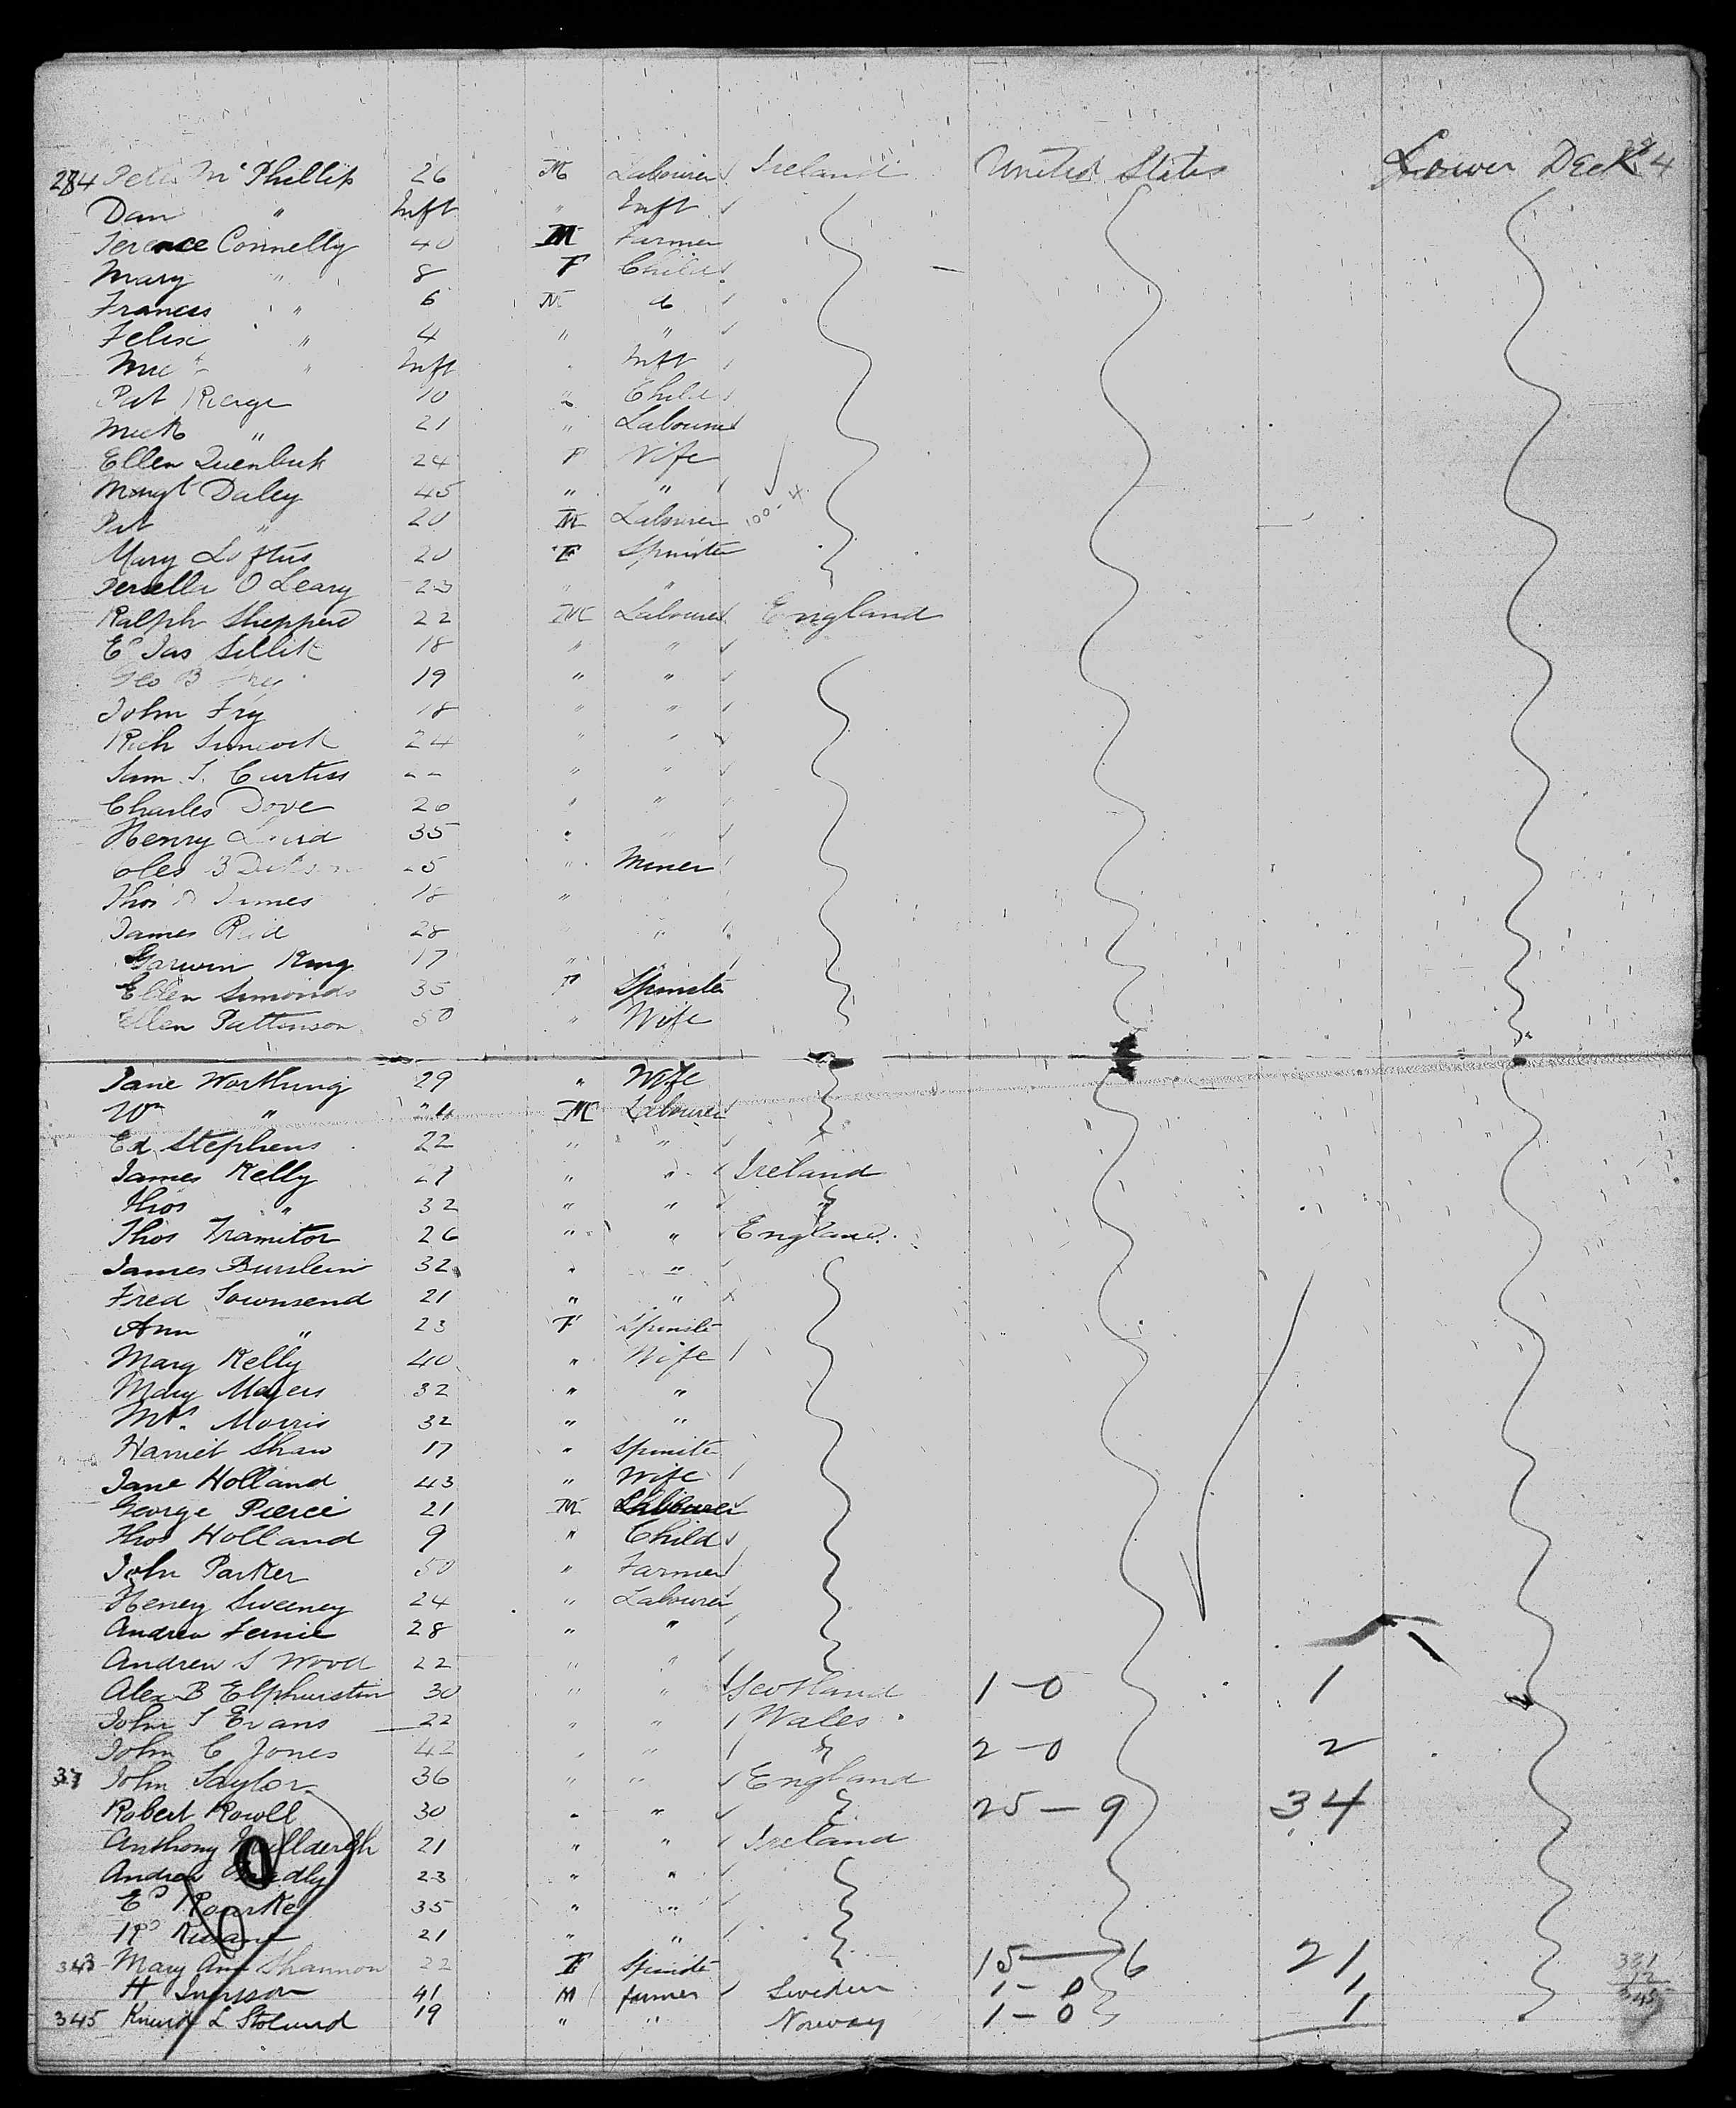 284 Peter McPhillip 26 M Labourer Ireland United States Lower Deck
Dan " Inft " Inft
Terence Connelly 40 M Farmer
Mary " 8 F Child
Frances " 6 M
Felix " 4 " "
" Inft Inft
Pat 10 " Child
Mick " 21 " Labourer
Ellen 24 F Wife
Margt Daley 45 " "
Pat " 20 M Labourer
Mary Loftus 20 F Spinster
O Leary 23 " "
Ralph Shepperd 22 M Labourer England
Ed Jas 18 " "
Geo B 19 " "
John Fry 18 " "
Rich Simcock 24 " "
Sam. J. Curtiss " "
Charles Dove 26 " "
Henry 35 "
B " Miner
Thos James 18 "
James Reid 28 " "
Garwin King 17 "
Ellen Simonds 35 F Spinster
Ellen Pattinson 50 " Wife
Jane Worthing 29 " Wife
Wm " M Labourer
Ed Stephens 22 " "
James Kelly " " Ireland
Thos " 32 " " "
Thos Framitor 26 " " England
James Burslein 32 " "
Fred Townsend 21 " "
Ann " 23 F Spinster
Mary Kelly 40 " Wife
Mary Mayers 32 " "
Mrs. Morris 32 " "
Harriet Shaw 17 " Spinster
Jane Holland 43 " Wife
George Pierce 21 M Labourer
Thos Holland 9 " Child
John Parker 50 " Farmer
Henry Sweeney 24 " Labourer
Andrew Fernie 28 " "
Andrew S Wood 22 " "
Alex B Elphurstin 30 " " Scotland 1-0 1
John S Evans 22 " " Wales
John C Jones 42 " " " 2-0 2
37 John Taylor 36 " " England
Robert Rowll 30 " " 25-9 34
Anthony 21 " " Ireland
Andrew 23 " "
Ed Rourke 35 " "
21 " "
343 Mary Ann Shannon 22 F Spinster 15-6 21
H 41 M farmer Sweden 1-0 1
345 L Stolund 19 " " Norway 1-0 1